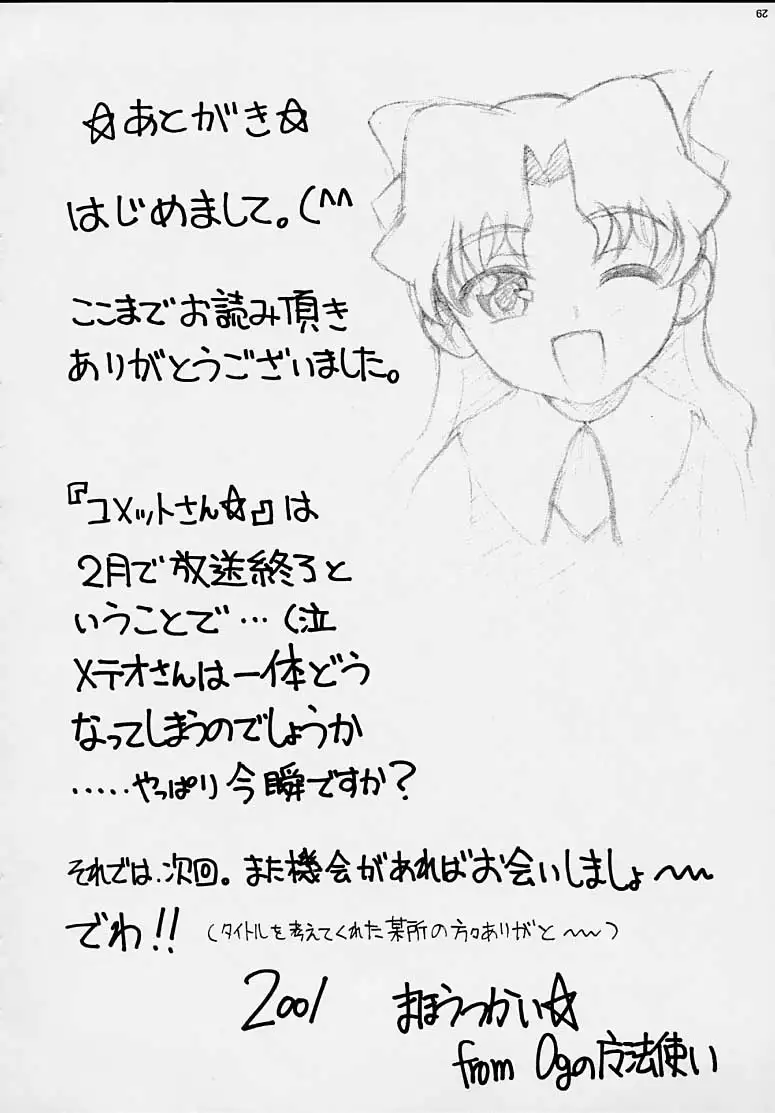 29
☆あとがき☆
はじめまして。(^^
ここまでお読み頂き
ありがとうございました。
『コメットさん☆』は
2月で放送終了と
いうことで…(泣
メテオさんは一体どう
なってしまうのでしょうか
.....やっぱり今瞬ですか?
それでは、次回。また機会があればお会いしましょ〜〜
でわ!!(タイトルを考えてくれた某所の方々ありがと〜〜)
2001 まほうつかい☆
from Ogの魔法使い